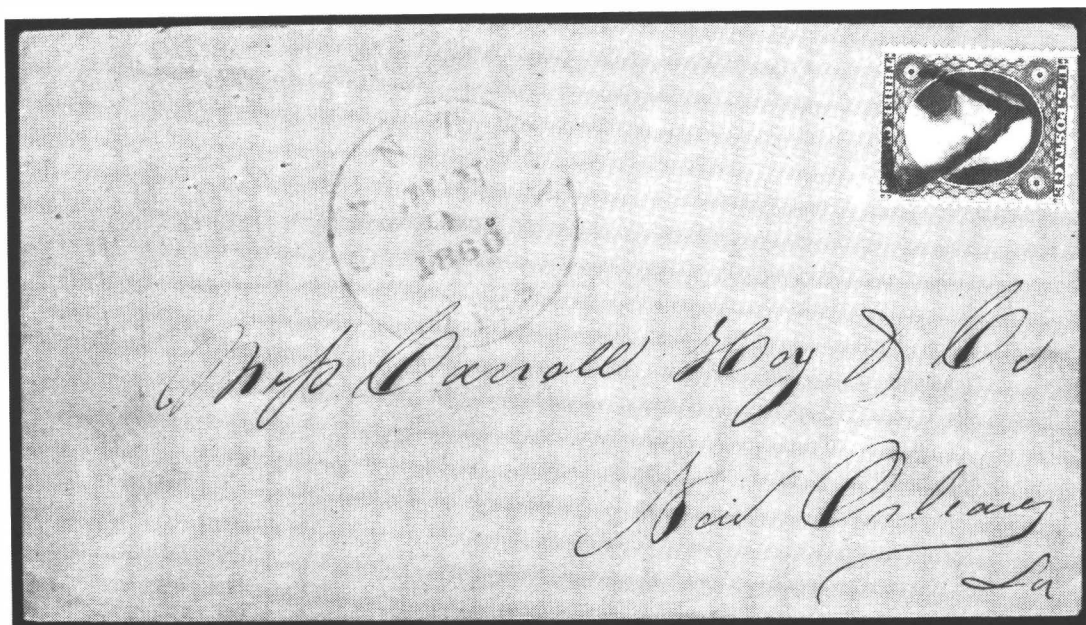 U.S. POSTAGE.
THREE C
1860
Mess Carroll Hoy & Co
New Orleans
La